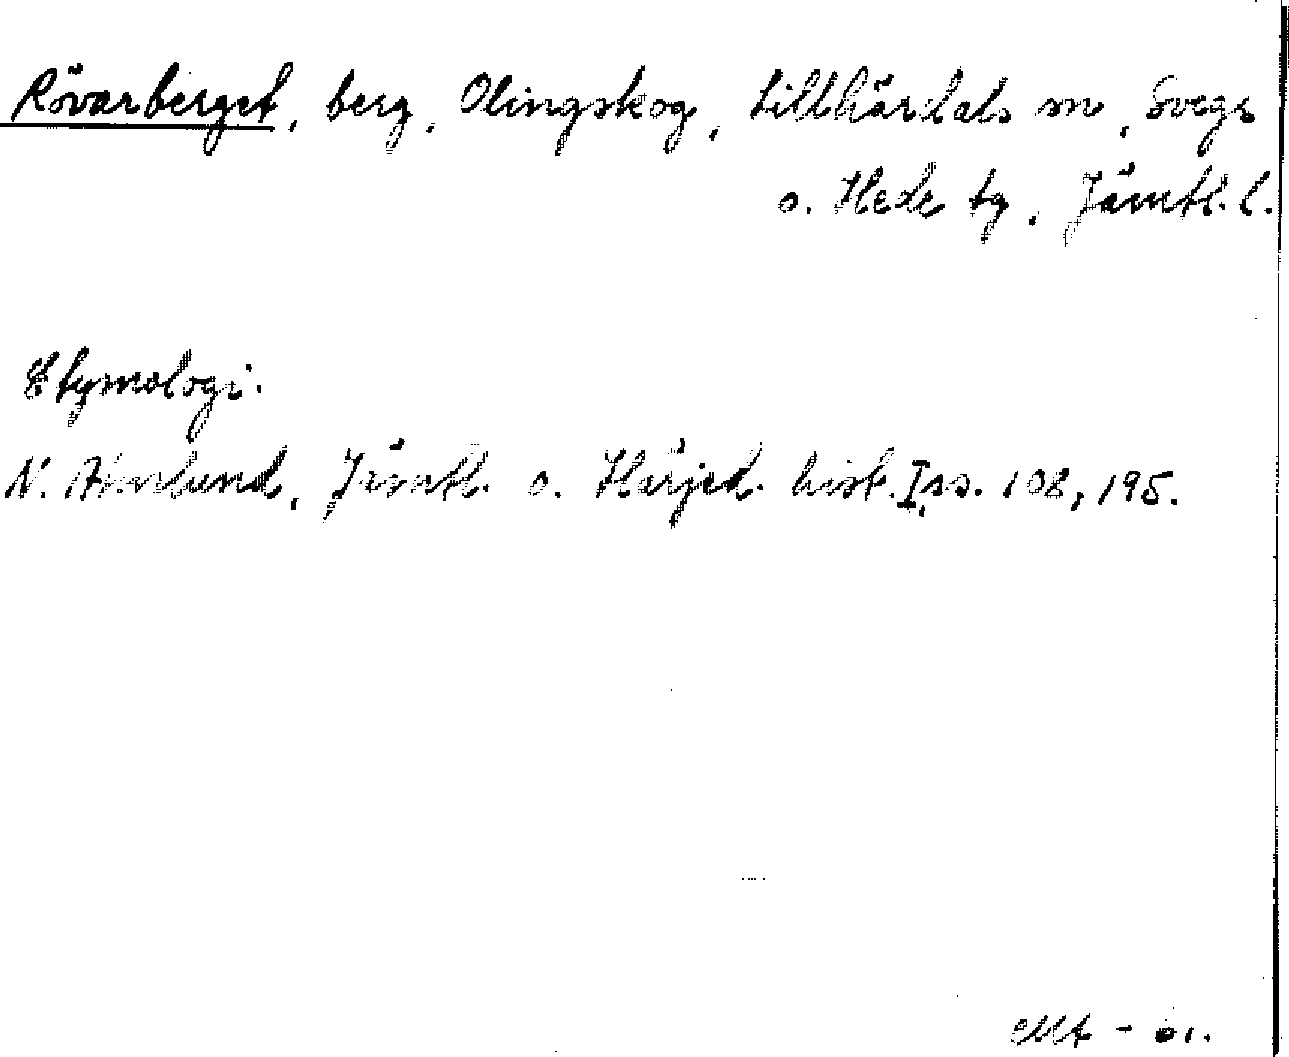 Rövarberget, berg, Olingskog, Lillhärdals sn, Svegs
o. Hede tg, Jämtl. l.
Etymologi.
N. Ahnlund, Jämtl. o. Härjed. hist. I, ss. 108, 195.